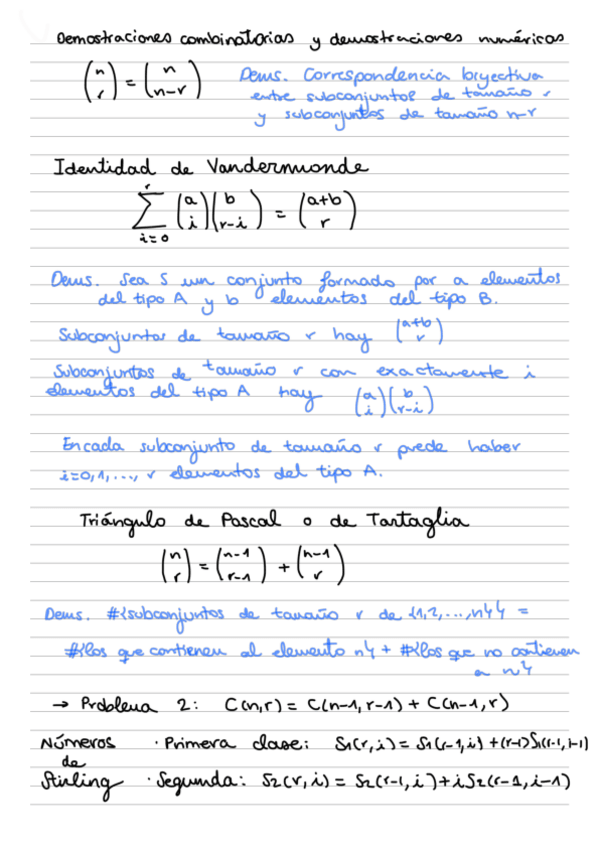 Demostraciones combinatorias y demostraciones numéricas
(n r) = (n n-r) Dems. Correspondencia biyectiva
entre subconjuntos de tamaño r
y subconjuntos de tamaño n-r
Identidad de Vandermonde
∑_{i=0}^{r} (a i)(b r-i) = (a+b r)
Dems. Sea S un conjunto formado por a elementos
del tipo A y b elementos del tipo B.
Subconjuntos de tamaño r hay (a+b r)
Subconjuntos de tamaño r con exactamente i
elementos del tipo A hay (a i)(b r-i)
En cada subconjunto de tamaño r puede haber
i=0,1,..., r elementos del tipo A.
Triángulo de Pascal o de Tartaglia
(n r) = (n-1 r-1) + (n-1 r)
Dems. #{subconjuntos de tamaño r de {1,2,...,n}} =
#{los que contienen al elemento n} + #{los que no contienen
a n}
→ Problema 2: C(n,r) = C(n-1,r-1) + C(n-1,r)
Números · Primera clase: S1(r,i) = S1(r-1,i) + (r-1)S1(r-1,i-1)
de
Stirling · Segunda: S2(r,i) = S2(r-1,i) + iS2(r-1,i-1)